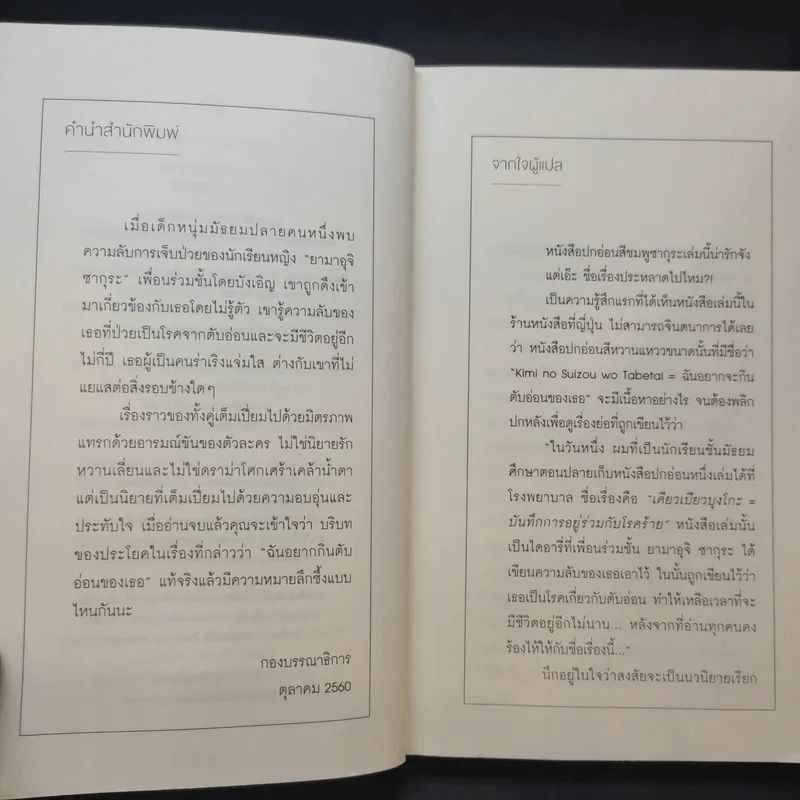 คำนำสำนักพิมพ์
เมื่อเด็กหนุ่มมัธยมปลายคนหนึ่งพบ
ความลับการเจ็บป่วยของนักเรียนหญิง “ยามาอุจิ
ซากุระ” เพื่อนร่วมชั้นโดยบังเอิญ เขาถูกดึงเข้า
มาเกี่ยวข้องกับเธอโดยไม่รู้ตัว เขารู้ความลับของ
เธอที่ป่วยเป็นโรคจากตับอ่อนและจะมีชีวิตอยู่อีก
ไม่กี่ปี เธอผู้เป็นคนร่าเริงแจ่มใส ต่างกับเขาที่ไม่
แยแสต่อสิ่งรอบข้างใดๆ
เรื่องราวของทั้งคู่เต็มเปี่ยมไปด้วยมิตรภาพ
แทรกด้วยอารมณ์ขันของตัวละคร ไม่ใช่นิยายรัก
หวานเลี่ยนและไม่ใช่ดราม่าโศกเศร้าเคล้าน้ำตา
แต่เป็นนิยายที่เต็มเปี่ยมไปด้วยความอบอุ่นและ
ประทับใจ เมื่ออ่านจบแล้วคุณจะเข้าใจว่า บริบท
ของประโยคในเรื่องที่กล่าวว่า “ฉันอยากกินตับ
อ่อนของเธอ” แท้จริงแล้วมีความหมายลึกซึ้งแบบ
ไหนกันนะ
กองบรรณาธิการ
ตุลาคม 2560
จากใจผู้แปล
หนังสือปกอ่อนสีชมพูซากุระเล่มนี้น่ารักจัง
แต่เอ๊ะ ชื่อเรื่องประหลาดไปไหม?!
เป็นความรู้สึกแรกที่ได้เห็นหนังสือเล่มนี้ใน
ร้านหนังสือที่ญี่ปุ่น ไม่สามารถจินตนาการได้เลย
ว่า หนังสือปกอ่อนสีหวานแหววขนาดนั้นที่มีชื่อว่า
“Kimi no Suizou wo Tabetai = ฉันอยากจะกิน
ตับอ่อนของเธอ” จะมีเนื้อหาอย่างไร จนต้องพลิก
ปกหลังเพื่อดูเรื่องย่อที่ถูกเขียนไว้ว่า
“ในวันหนึ่ง ผมที่เป็นนักเรียนชั้นมัธยม
ศึกษาตอนปลายเก็บหนังสือปกอ่อนหนึ่งเล่มได้ที่
โรงพยาบาล ชื่อเรื่องคือ “เคียวเบียวบุงโกะ =
บันทึกการอยู่ร่วมกับโรคร้าย” หนังสือเล่มนั้น
เป็นไดอารี่ที่เพื่อนร่วมชั้น ยามาอุจิ ซากุระ ได้
เขียนความลับของเธอเอาไว้ ในนั้นถูกเขียนไว้ว่า
เธอเป็นโรคเกี่ยวกับตับอ่อน ทำให้เหลือเวลาที่จะ
มีชีวิตอยู่อีกไม่นาน... หลังจากที่อ่านทุกคนคง
ร้องไห้ให้กับชื่อเรื่องนี้...”
นึกอยู่ในใจว่าสงสัยจะเป็นนวนิยายเรียก